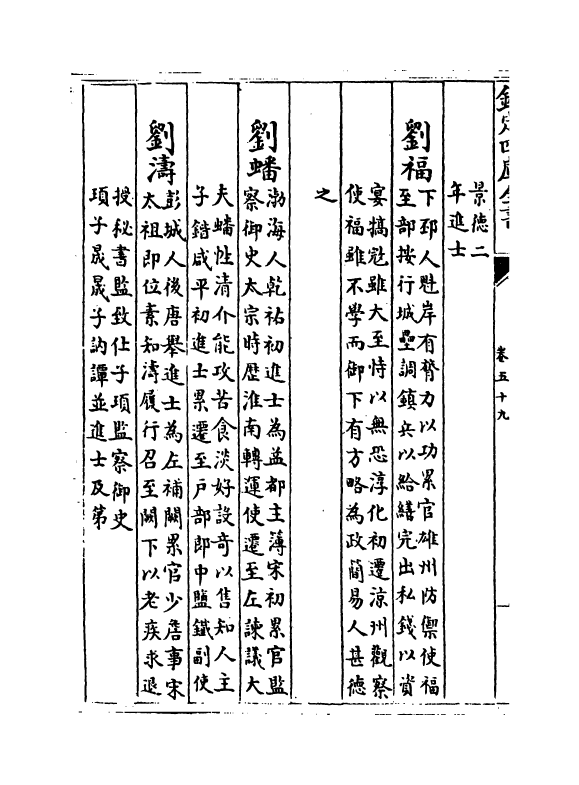 欽定四庫全書
卷五十九
景德二
年進士
劉福
下邳人魁岸有膂力以功累官雄州防禦使福
至部按行城壘調鎮兵以給繕完出私錢以資
宴犒冦雖大至恃以無恐淳化初遷涼州觀察
使福雖不學而御下有方略為政簡易人甚德
之
劉蟠
渤海人乾祐初進士為益都主薄宋初累官監
察御史太宗時歴淮南轉運使遷至左諫議大
夫蟠性清介能攻苦食淡好設奇以售知人主
子鍇咸平初進士累遷至户部郎中鹽鐵副使
劉濤
彭城人後唐舉進士為左補闕累官少詹事宋
太祖即位素知濤履行召至闕下以老疾求退
授秘書監致仕子項監察御史
項子晟晟子訥譚並進士及第